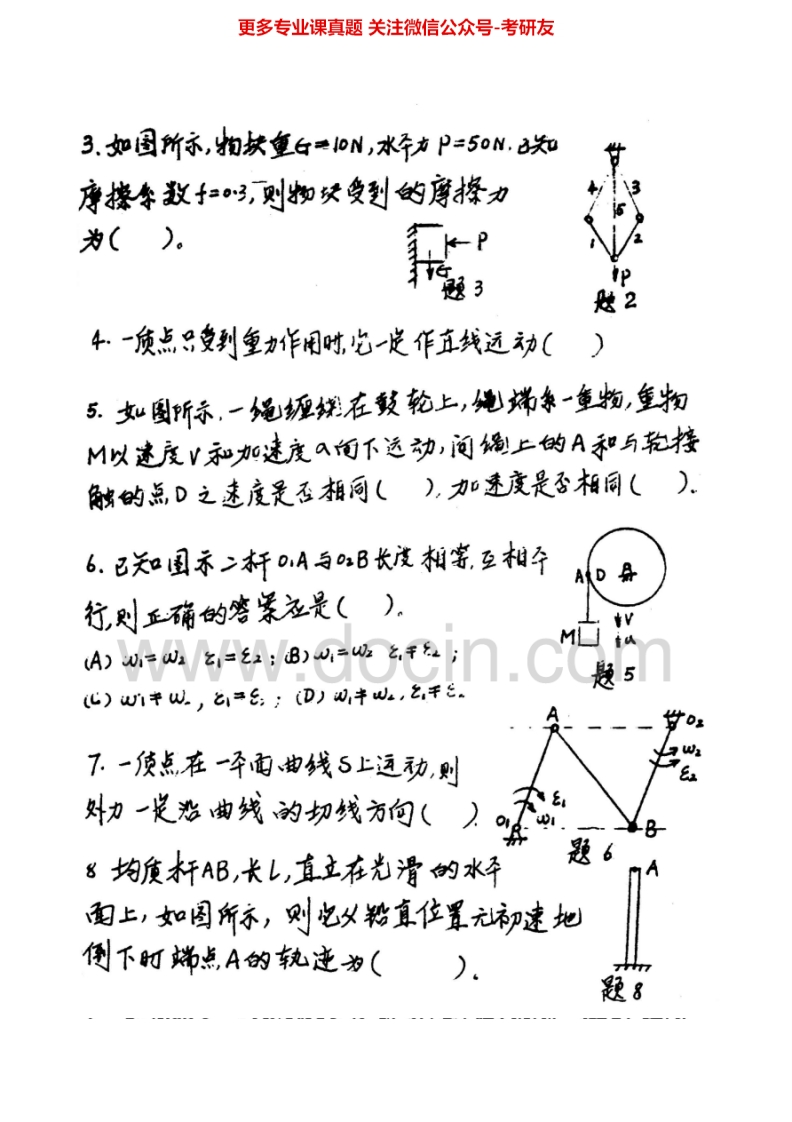 更多专业课真题 关注微信公众号-考研友
3. 如图所示,物块重G=10N,水平力P=50N.已知
摩擦系数f=0.3,则物块受到的摩擦力
为( )。
P
G
题3
4 3
5
1 2
P
题2
4. 一质点只受到重力作用时,它一定作直线运动( )
5. 如图所示,一绳缠绕在鼓轮上,绳端系一重物,重物
M以速度V和加速度a向下运动,问绳上的A和与轮接
触的点D之速度是否相同( ),加速度是否相同( )。
A D B
M V
a
题5
6. 已知图示二杆O1A与O2B长度相等,互相平
行,则正确的答案应是( )。
(A) ω1=ω2 ε1=ε2; (B) ω1=ω2 ε1≠ε2;
(C) ω1≠ω2, ε1=ε2; (D) ω1≠ω2, ε1≠ε2
www.docin.com
A O2
ω2
ε2
ε1
O1 ω1 B
题6
7. 一质点在一平面曲线S上运动,则
外力一定沿曲线的切线方向( )
8 均质杆AB,长L,直立在光滑的水平
面上,如图所示,则它从铅直位置无初速地
倒下时端点A的轨迹为( )。
A
题8